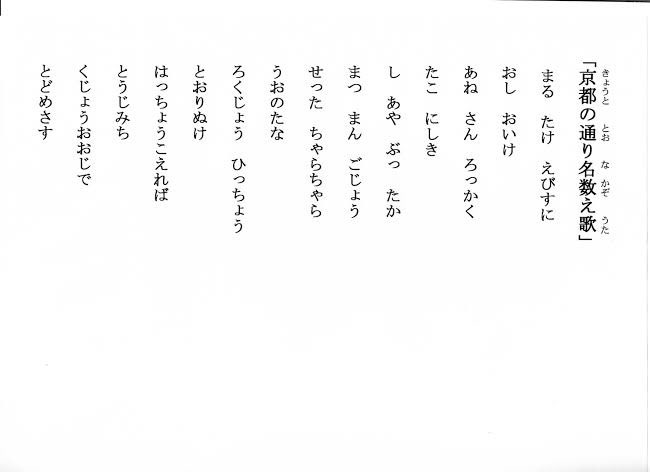 「京都の通り名数え歌」
きょうと とお な かぞ うた
まる たけ えびすに
おし おいけ
あね さん ろっかく
たこ にしき
し あや ぶっ たか
まつ まん ごじょう
せった ちゃらちゃら
うおのたな
ろくじょう ひっちょう
とおりぬけ
はっちょうこえれば
とうじみち
くじょうおおじで
とどめさす